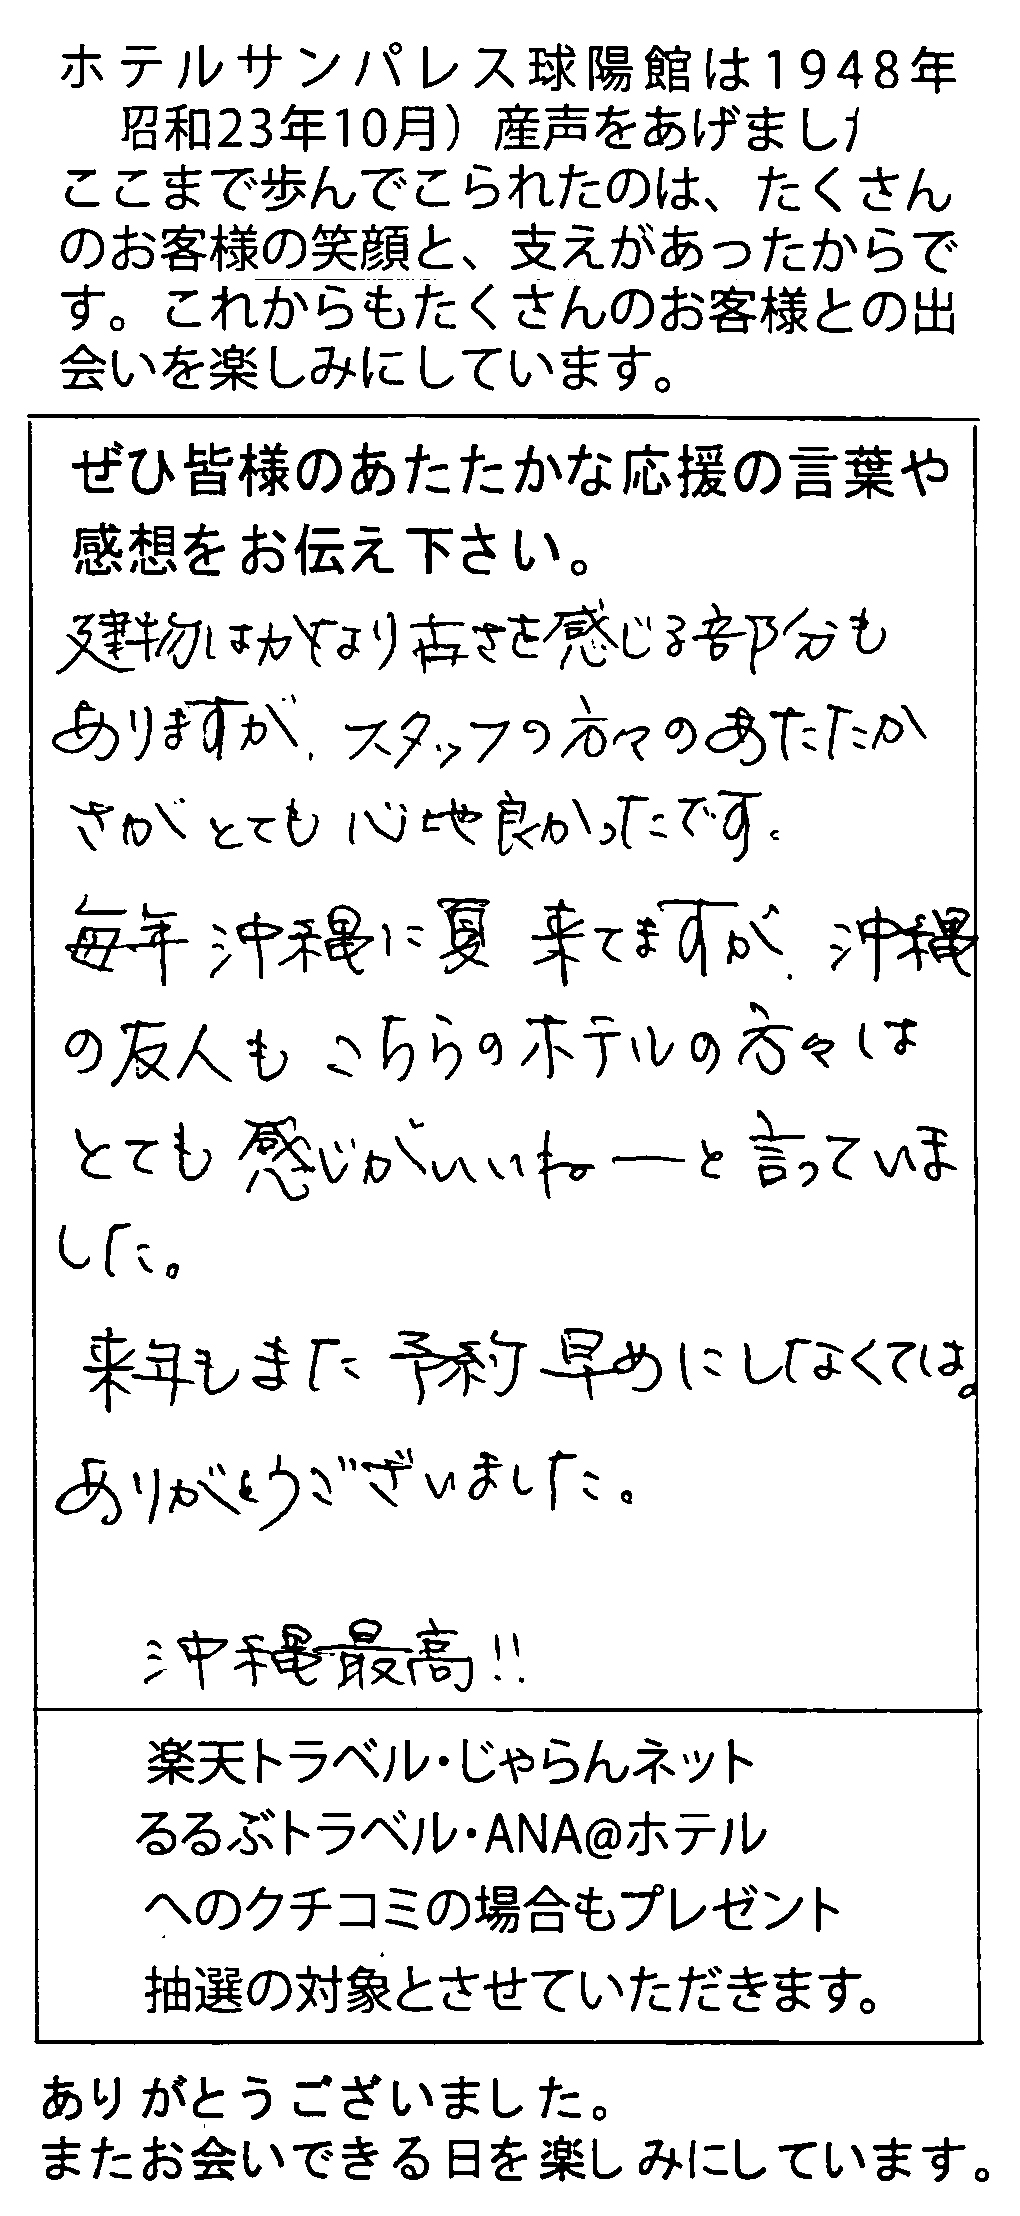 ホテルサンパレス球陽館は1948年
昭和23年10月）産声をあげました
ここまで歩んでこられたのは、たくさん
のお客様の笑顔と、支えがあったからで
す。これからもたくさんのお客様との出
会いを楽しみにしています。
ぜひ皆様のあたたかな応援の言葉や
感想をお伝え下さい。
建物はかなり古さを感じる部分も
ありますが、スタッフの方々のあたたか
さがとても心地良かったです。
毎年 沖縄に夏 来てますが、沖縄
の友人も こちらのホテルの方々は
とても 感じがいいねーと言っていま
した。
来年もまた 予約 早めにしなくては。
ありがとうございました。
沖縄最高!!
楽天トラベル・じゃらんネット
るるぶトラベル・ANA@ホテル
へのクチコミの場合もプレゼント
抽選の対象とさせていただきます。
ありがとうございました。
またお会いできる日を楽しみにしています。